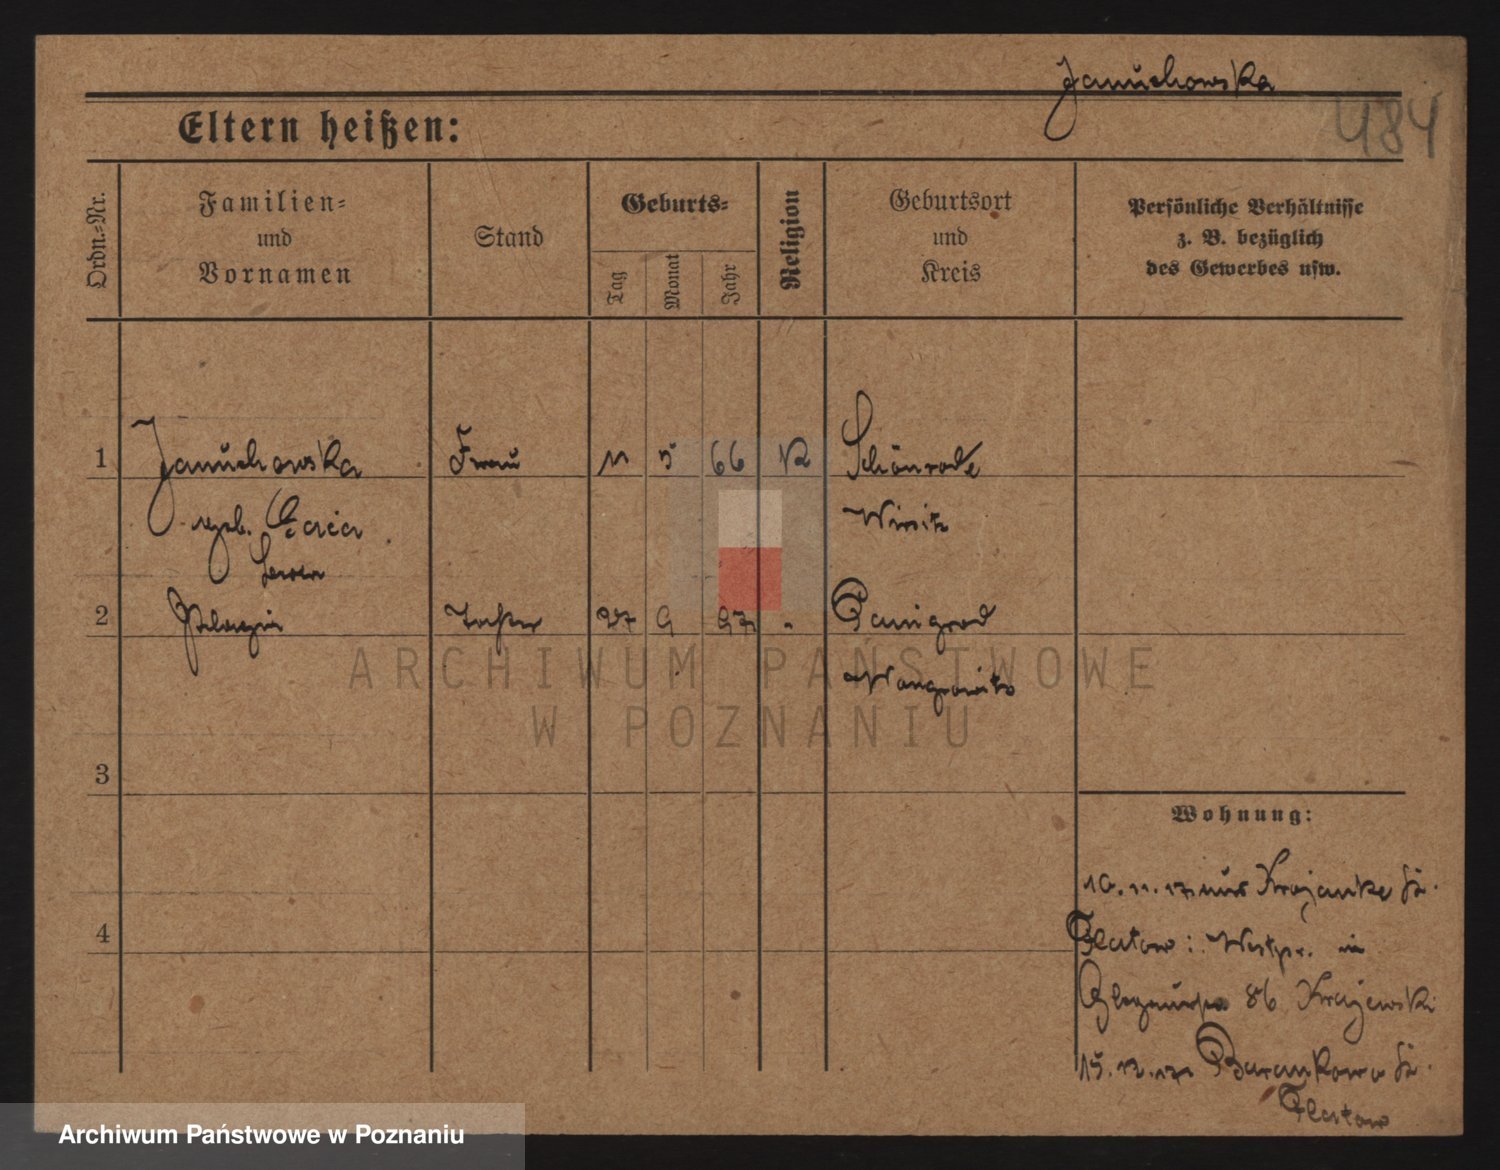 Januchowska
484
Eltern heißen:
Ordn.-Nr.
Familien-
und
Vornamen
Stand
Geburts-
Tag
Monat
Jahr
Religion
Geburtsort
und
Kreis
Persönliche Verhältnisse
z. B. bezüglich
des Gewerbes usw.
1 Januchowska Frau 11 5 66 K Schönrode
geb. Wirsitz
2 Pelagia Tochter 27 9 97 Panigrod
Wongrowitz
3
Wohnung:
10.11.17 aus Krojanke Kr.
4
Flatow i. Westpr. in
86 Krajewski
15.12.17 Kr.
Flatow
ARCHIWUM PAŃSTWOWE
W POZNANIU
Archiwum Państwowe w Poznaniu